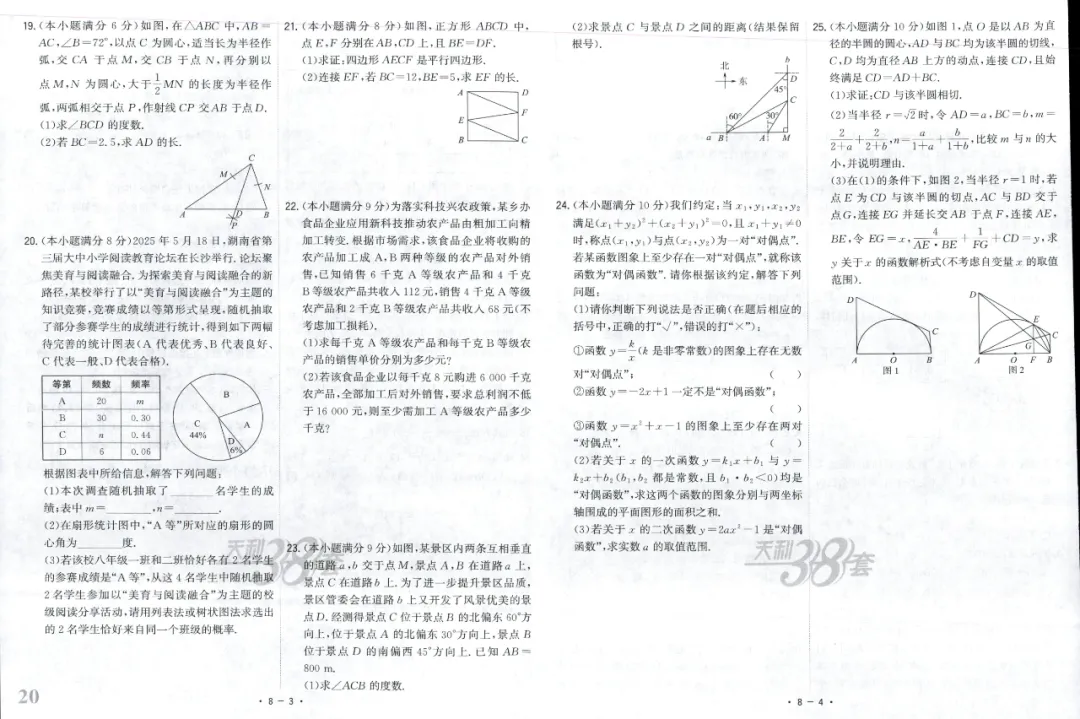 19.(本小题满分 6 分)如图,在△ABC 中,AB=
AC,∠B=72°,以点 C 为圆心,适当长为半径作
弧,交 CA 于点 M,交 CB 于点 N,再分别以
点 M,N 为圆心,大于1/2MN 的长度为半径作
弧,两弧相交于点 P,作射线 CP 交 AB 于点 D.
(1)求∠BCD 的度数.
(2)若 BC=2.5,求 AD 的长.
C
M
N
A
D
B
P
20.(本小题满分 8 分)2025 年 5 月 18 日,湖南省第
三届大中小学阅读教育论坛在长沙举行.论坛聚
焦美育与阅读融合.为探索美育与阅读融合的新
路径,某校举行了以“美育与阅读融合”为主题的
知识竞赛,竞赛成绩以等第形式呈现,随机抽取
了部分参赛学生的成绩进行统计,得到如下两幅
待完善的统计图表(A 代表优秀、B 代表良好、
C 代表一般、D 代表合格).
等第 频数 频率
A 20 m
B 30 0.30
C n 0.44
D 6 0.06
B
C
44%
A
D
6%
根据图表中所给信息,解答下列问题:
(1)本次调查随机抽取了______名学生的成
绩;表中 m=______,n=______.
(2)在扇形统计图中,“A 等”所对应的扇形的圆
心角为______度.
(3)若该校八年级一班和二班恰好各有 2 名学生
的参赛成绩是“A 等”,从这 4 名学生中随机抽取
2 名学生参加以“美育与阅读融合”为主题的校
级阅读分享活动,请用列表法或树状图法求选出
的 2 名学生恰好来自同一个班级的概率.
20
21.(本小题满分 8 分)如图,正方形 ABCD 中,
点 E,F 分别在 AB,CD 上,且 BE=DF.
(1)求证:四边形 AECF 是平行四边形.
(2)连接 EF,若 BC=12,BE=5,求 EF 的长.
A
D
E
F
B
C
22.(本小题满分 9 分)为落实科技兴农政策,某乡办
食品企业应用新科技推动农产品由粗加工向精
加工转变.根据市场需求,该食品企业将收购的
农产品加工成 A,B 两种等级的农产品对外销
售,已知销售 6 千克 A 等级农产品和 4 千克
B 等级农产品共收入 112 元,销售 4 千克 A 等级
农产品和 2 千克 B 等级农产品共收入 68 元(不
考虑加工损耗).
(1)求每千克 A 等级农产品和每千克 B 等级农
产品的销售单价分别为多少元?
(2)若该食品企业以每千克 8 元购进 6 000 千克
农产品,全部加工后对外销售,要求总利润不低
于 16 000 元,则至少需加工 A 等级农产品多少
千克?
23.(本小题满分 9 分)如图,某景区内两条互相垂直
的道路 a,b 交于点 M,景点 A,B 在道路 a 上,
景点 C 在道路 b 上.为了进一步提升景区品质,
景区管委会在道路 b 上又开发了风景优美的景
点 D.经测得景点 C 位于景点 B 的北偏东 60°方
向上,位于景点 A 的北偏东 30°方向上,景点 B
位于景点 D 的南偏西 45°方向上.已知 AB=
800 m.
(1)求∠ACB 的度数.
天利38套
· 8-3 ·
(2)求景点 C 与景点 D 之间的距离(结果保留
根号).
北
东
b
D
45°
C
60°
30°
a
B
A
M
24.(本小题满分 10 分)我们约定:当 x₁,y₁,x₂,y₂
满足(x₁+y₂)²+(x₂+y₁)²=0,且 x₁+y₁≠0
时,称点(x₁,y₁)与点(x₂,y₂)为一对“对偶点”.
若某函数图象上至少存在一对“对偶点”,就称该
函数为“对偶函数”.请你根据该约定,解答下列
问题:
(1)请你判断下列说法是否正确(在题后相应的
括号中,正确的打“√”,错误的打“×”):
①函数 y=k/x(k 是非零常数)的图象上存在无数
对“对偶点”; ( )
②函数 y=-2x+1 一定不是“对偶函数”;
( )
③函数 y=x²+x-1 的图象上至少存在两对
“对偶点”. ( )
(2)若关于 x 的一次函数 y=k₁x+b₁ 与 y=
k₂x+b₂(b₁,b₂ 都是常数,且 b₁·b₂<0)均是
“对偶函数”,求这两个函数的图象分别与两坐标
轴围成的平面图形的面积之和.
(3)若关于 x 的二次函数 y=2ax²-1 是“对偶
函数”,求实数 a 的取值范围.
25.(本小题满分 10 分)如图 1,点 O 是以 AB 为直
径的半圆的圆心,AD 与 BC 均为该半圆的切线,
C,D 均为直径 AB 上方的动点,连接 CD,且始
终满足 CD=AD+BC.
(1)求证:CD 与该半圆相切.
(2)当半径 r=√2时,令 AD=a,BC=b,m=
2/(2+a)+2/(2+b),n=a/(1+a)+b/(1+b),比较 m 与 n 的大
小,并说明理由.
(3)在(1)的条件下,如图 2,当半径 r=1 时,若
点 E 为 CD 与该半圆的切点,AC 与 BD 交于
点 G,连接 EG 并延长交 AB 于点 F,连接 AE,
BE,令 EG=x,4/(AE·BE)+1/FG+CD=y,求
y 关于 x 的函数解析式(不考虑自变量 x 的取值
范围).
D
C
A
O
B
图 1
D
E
C
G
A
O
F
B
图 2
天利38套
· 8-4 ·